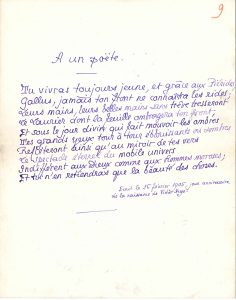 9
A un poète.
Tu vivras toujours jeune, et grâce aux Piérides
Gallus, jamais ton front ne connaîtra les rides;
Leurs mains, leurs belles mains sans trêve tresseront
Le laurier dont la feuille ombragera ton front,
Et sous le jour divin qui fait mouvoir les ombres
Tes grands yeux tour à tour éblouissants ou sombres
Reflèteront ainsi qu'au miroir de tes vers
Le spectacle éternel du mobile univers
Indifférent aux dieux comme aux hommes moroses;
Et tu n'en retiendrais que la beauté des choses.
Ecrit le 25 février 1905, jour anniversaire
de la naissance de Victor Hugo.